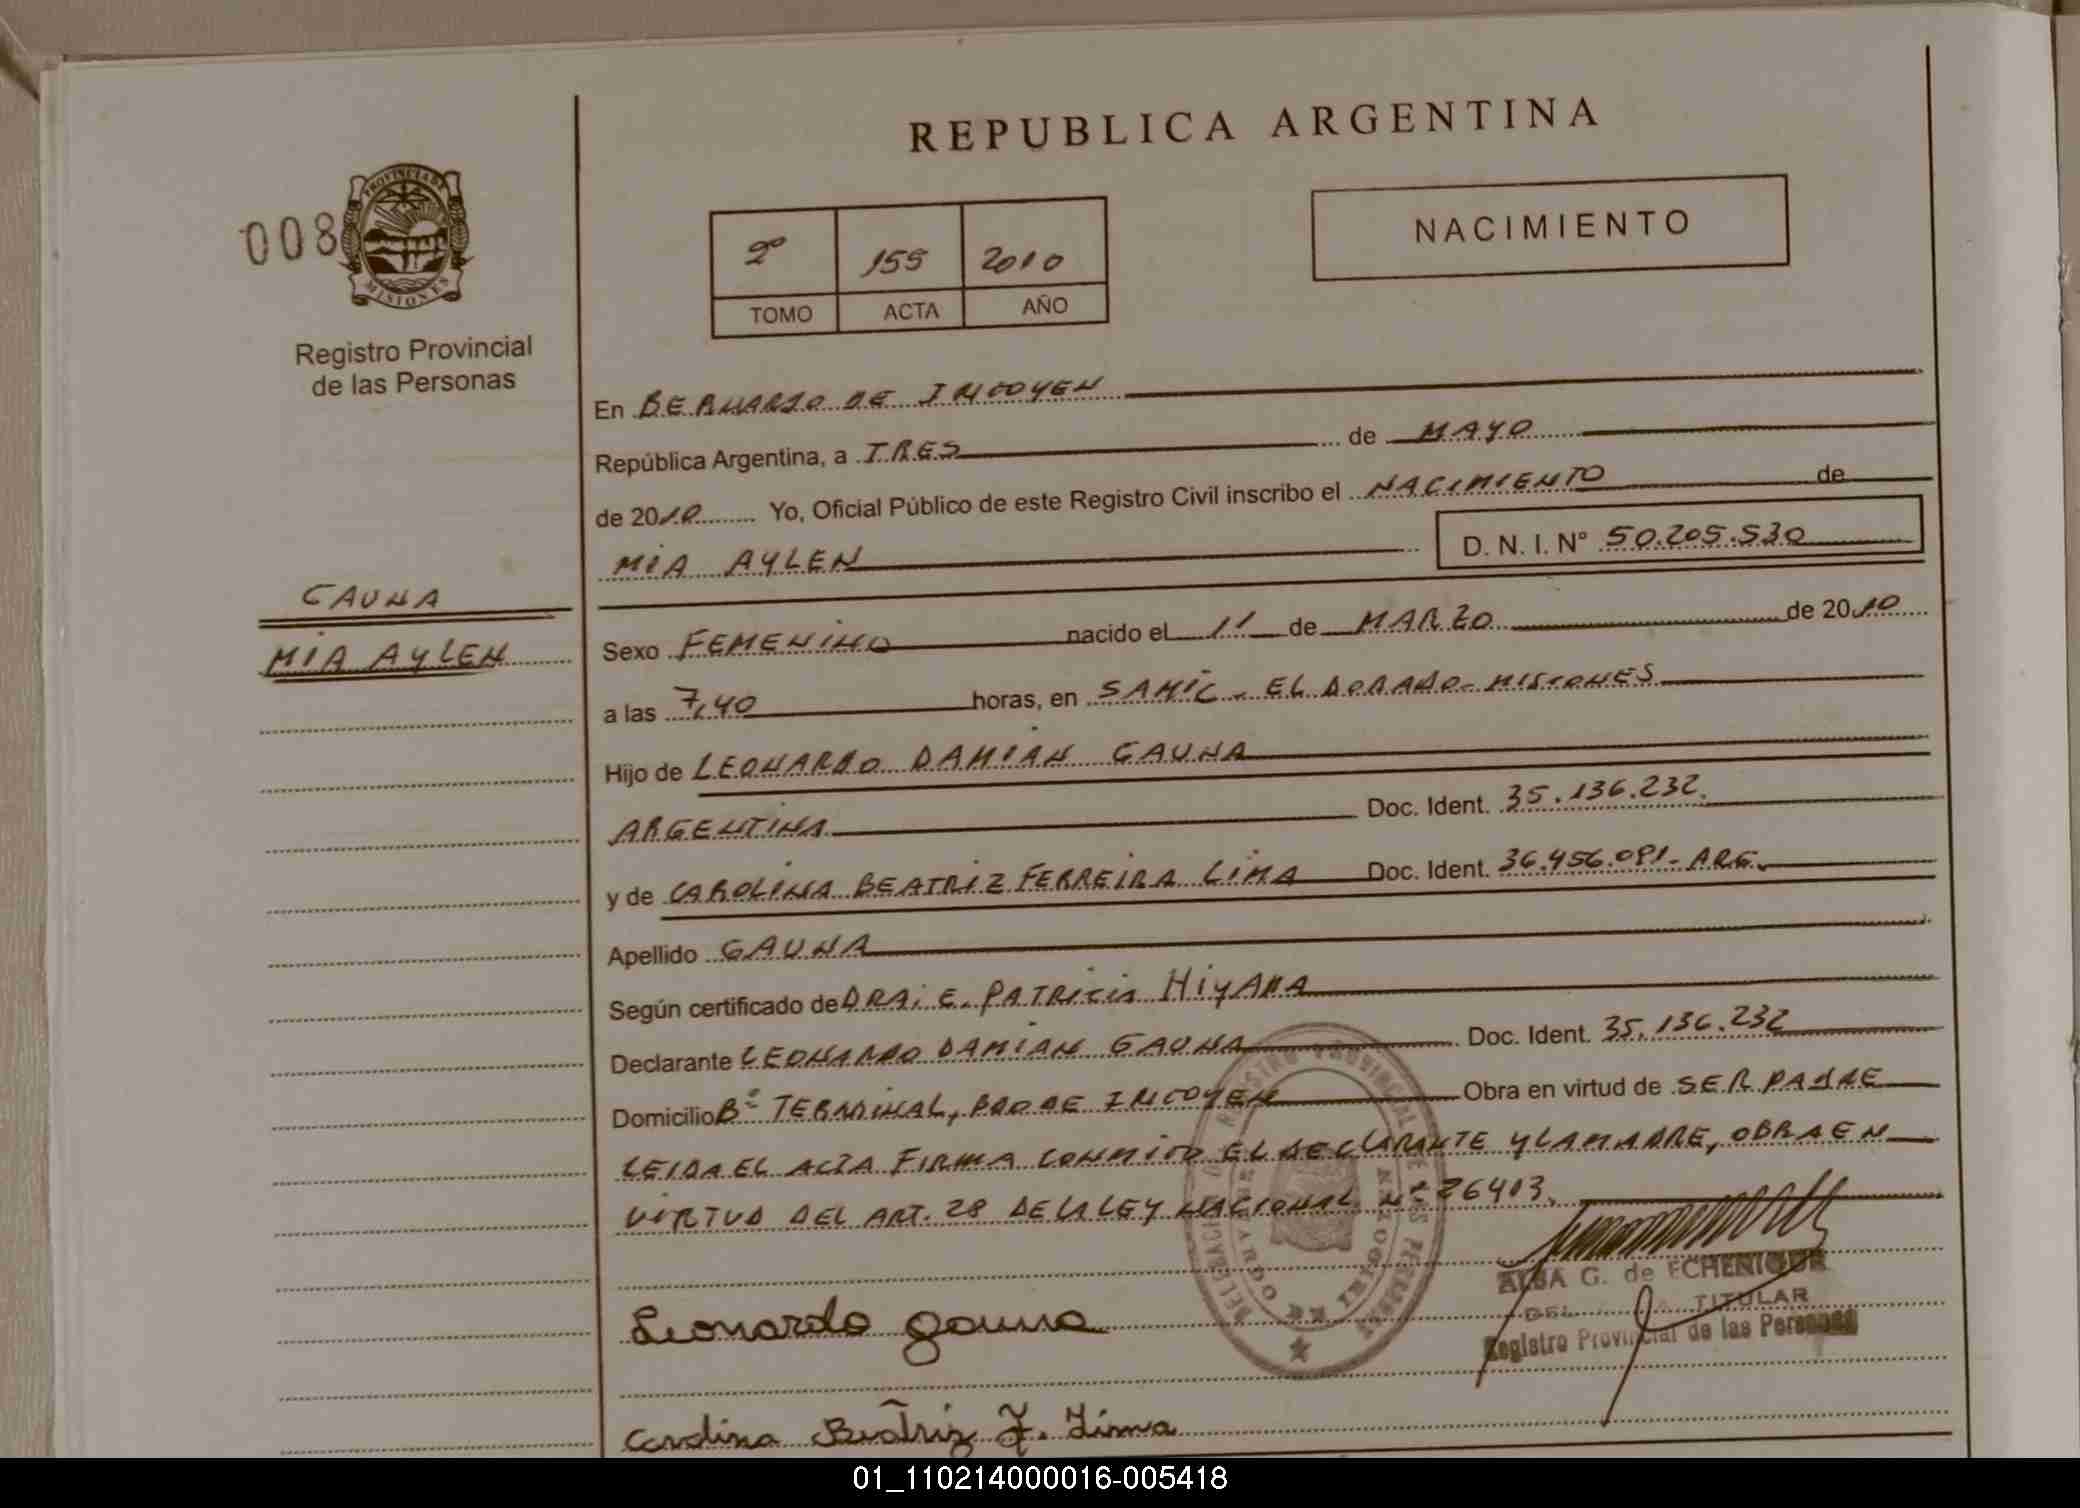 REPUBLICA ARGENTINA
008
PROVINCIA DE
MISIONES
Registro Provincial
de las Personas
2º 155 2010
TOMO ACTA AÑO
NACIMIENTO
En BERNARDO DE IRIGOYEN
República Argentina, a TRES de MAYO
de 2010 Yo, Oficial Público de este Registro Civil inscribo el NACIMIENTO de
MIA AYLEN D. N. I. Nº 50.205.530
GAUNA
MIA AYLEN
Sexo FEMENINO nacido el 11 de MARZO de 2010
a las 7,40 horas, en SAMIC - EL DORADO - MISIONES
Hijo de LEONARDO DAMIAN GAUNA
ARGENTINA Doc. Ident. 35.136.232.
y de CAROLINA BEATRIZ FERREIRA LIMA Doc. Ident. 36.456.091 - ARG.
Apellido GAUNA
Según certificado de DRA: E. PATRICIA HIYAMA
Declarante LEONARDO DAMIAN GAUNA Doc. Ident. 35.136.232
Domicilio Bº TERMINAL, BDO DE IRIGOYEN Obra en virtud de SER PADRE
LEIDA EL ACTA FIRMA CONMIGO EL DECLARANTE Y LA MADRE, OBRA EN
VIRTUD DEL ART. 28 DE LA LEY NACIONAL Nº 26413.
ALBA G. de ECHENIQUE
TITULAR
Registro Provincial de las Personas
Leonardo Gauna
Carolina Beatriz F. Lima
01_110214000016-005418